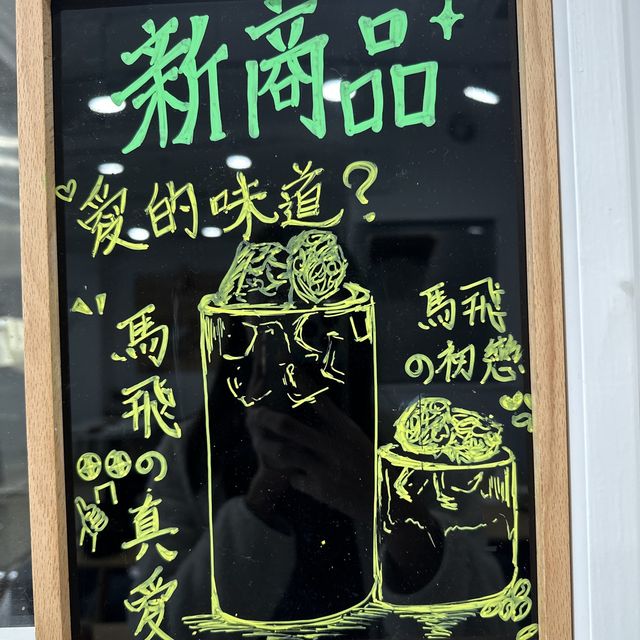 新商品
愛的味道？
馬飛の真愛
馬飛の初戀